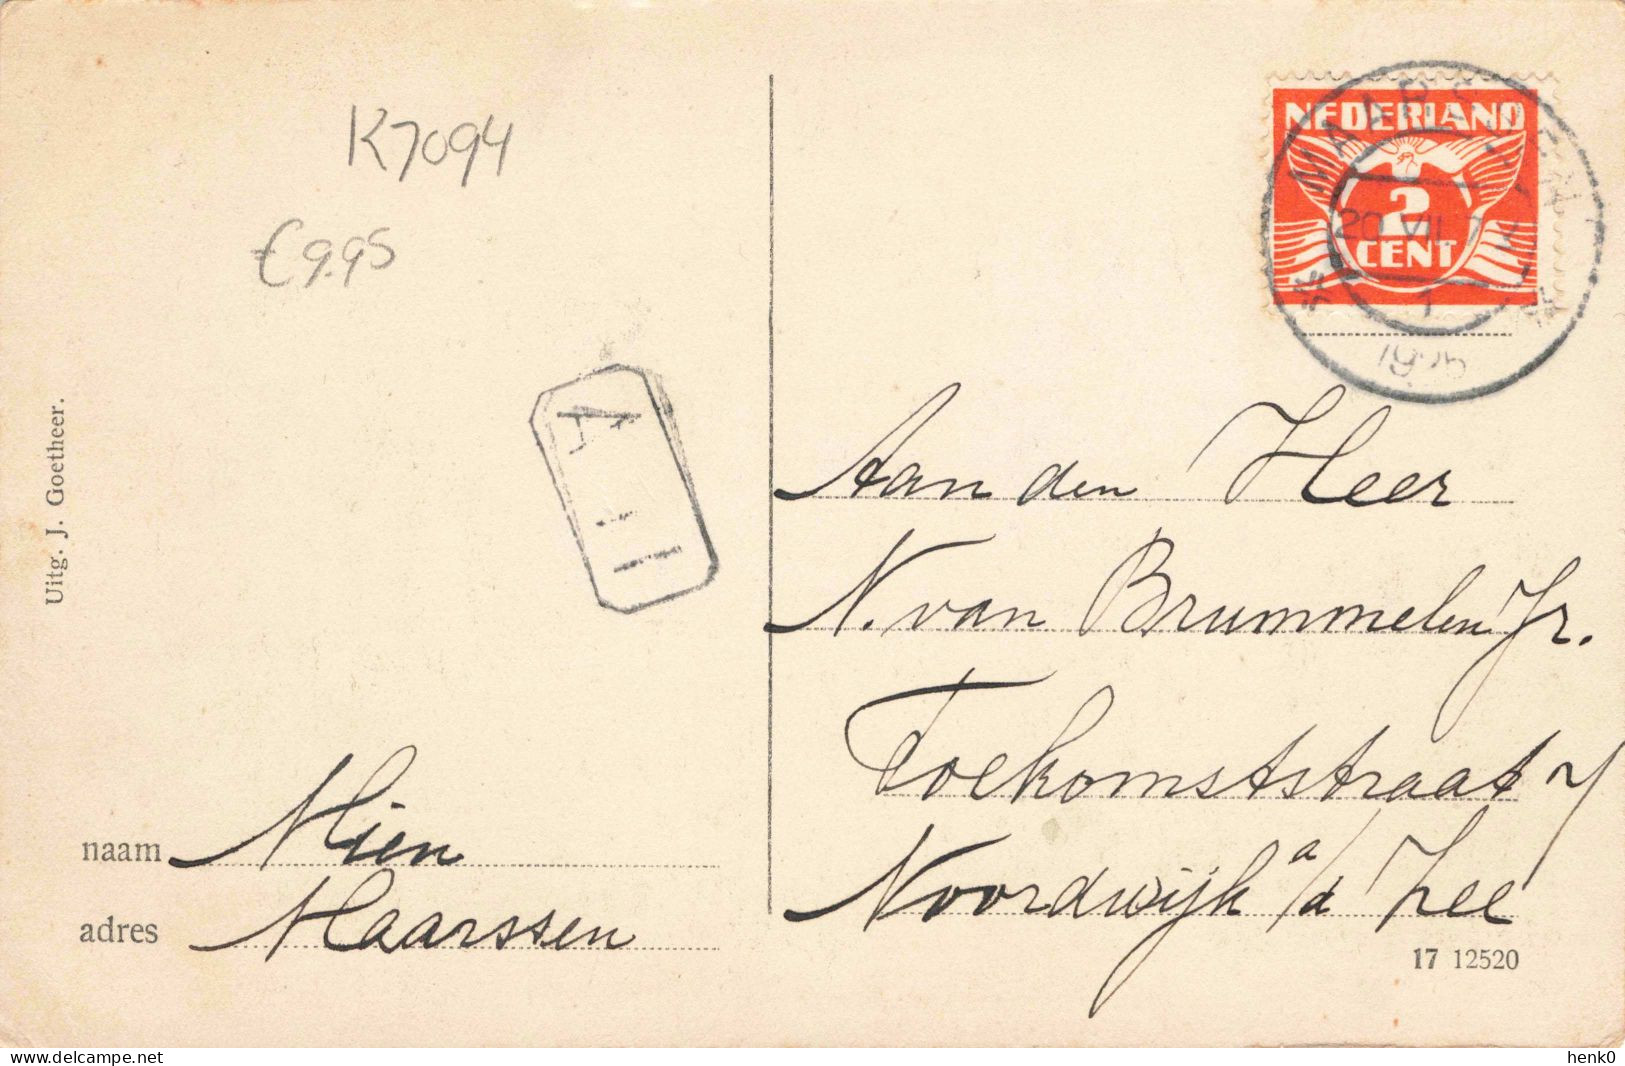 K7094
€9.95
NEDERLAND
2
CENT
MAARSSEN
20 VII 7
1
Uitg. J. Goetheer.
A
Aan den Heer
N. van Brummelen Jr.
Toekomststraat 7
Noordwijk a/d Zee
naam Mien
adres Maarssen
17 12520
www.delcampe.net
henk0